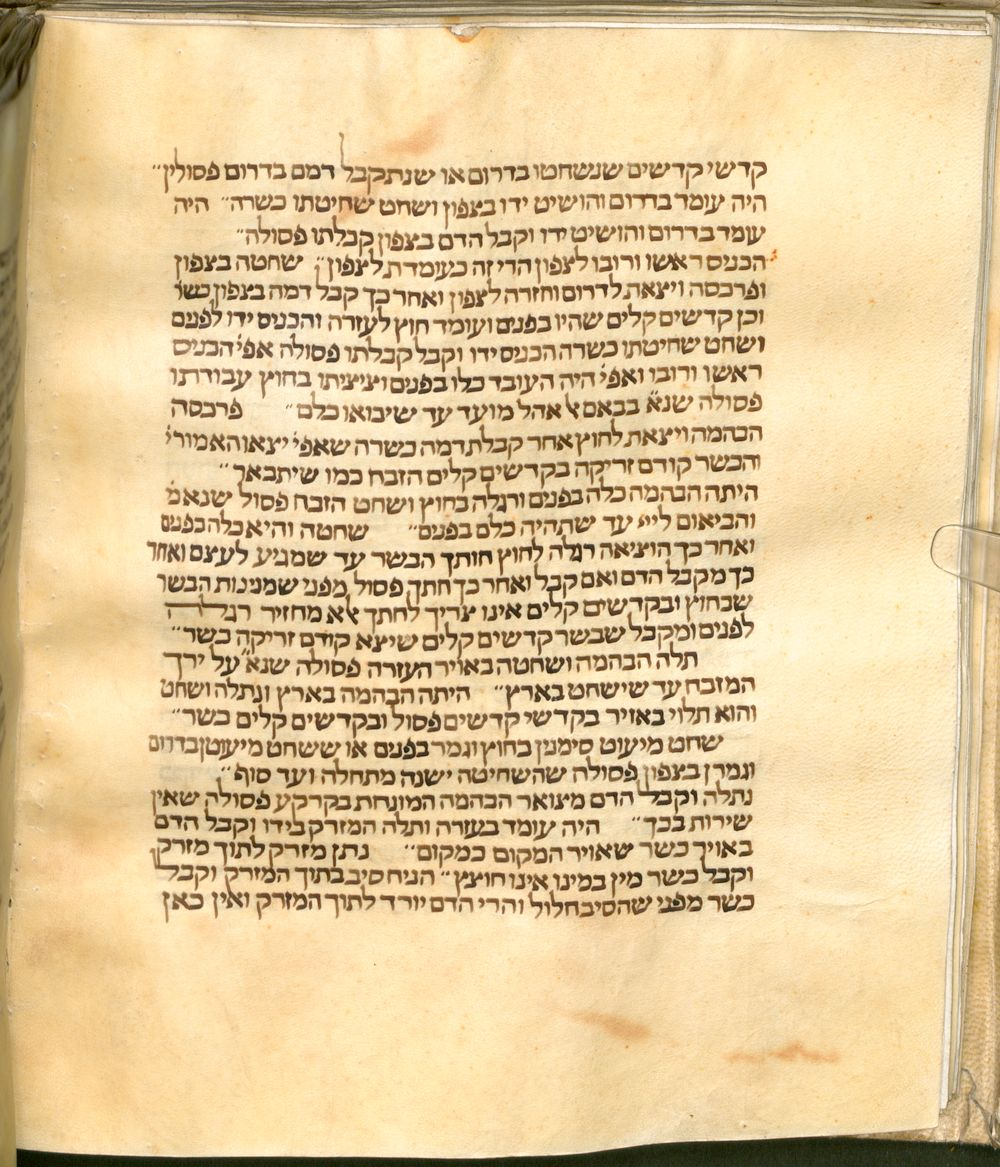 קדשי קדשים שנשחטו בדרום או שנתקבל דמם בדרום פסולין״
היה עומד בדרום והושיט ידו בצפון ושחט שחיטתו כשרה״ היה
עומד בדרום והושיט ידו וקבל הדם בצפון קבלתו פסולה״
הכניס ראשו ורובו לצפון הרי זה כעומד ת לצפון״ שחטה בצפון
ופרכסה ויצאת לדרום וחזרה לצפון ואחר כך קבל דמה בצפון כשר
וכן קדשים קלים שהיו בפנים ועומד חוץ לעזרה והכניס ידו לפנים
ושחט שחיטתו כשרה הכניס ידו וקבל קבלתו פסולה אפי׳ הכניס
ראשו ורובו ואפי׳ היה העובד כלו בפנים וציציתו בחוץ עבודתו
פסולה שנ״א בבאם אל אהל מועד עד שיבואו כלם״ פרכסה
הבהמה ויצאת לחוץ אחר קבלת דמה כשרה שאפי׳ יצאו האמורי׳
והבשר קודם זריקה בקדשים קלים הזבח כמו שיתבאר״
היתה הבהמה כלה בפנים ורגלה בחוץ ושחט הזבח פסול שנאמ׳
והביאום ליי׳ עד שתהיה כלם בפנים״ שחטה והיא כלה בפנים
ואחר כך הוציאה רגלה לחוץ חותך הבשר עד שמגיע לעצם ואחר
כך מקבל הדם ואם קבל ואחר כך חתך פסול מפני שמנינות הבשר
שבחוץ ובקדשים קלים אינו צריך לחתך אלא מחזיר רגלה
לפנים ומקבל שבשר קדשים קלים שיצא קודם זריקה כשר״
תלה הבהמה ושחטה באויר העזרה פסולה שנא׳ על ירך
המזבח עד שישחט בארץ״ היתה הבהמה בארץ ונתלה ושחט
והוא תלוי באויר בקדשי קדשים פסול ובקדשים קלים כשר״
שחט מיעוט סימנין בחוץ וגמר בפנים או ששחט מיעוטן בדרום
וגמרן בצפון פסולה שהשחיטה ישנה מתחלה ועד סוף״
נתלה וקבל הדם מצואר הבהמה המונחת בקרקע פסולה שאין
שירות בכך״ היה עומד בעזרה ותלה המזרק בידו וקבל הדם
באויר כשר שאויר המקום כמקום״ נתן מזרק לתוך מזרק
וקבל כשר מין במינו אינו חוצץ״ הניח סיב בתוך המזרק וקבל
כשר מפני שהסיב חלול והרי הדם יורד לתוך המזרק ואין כאן